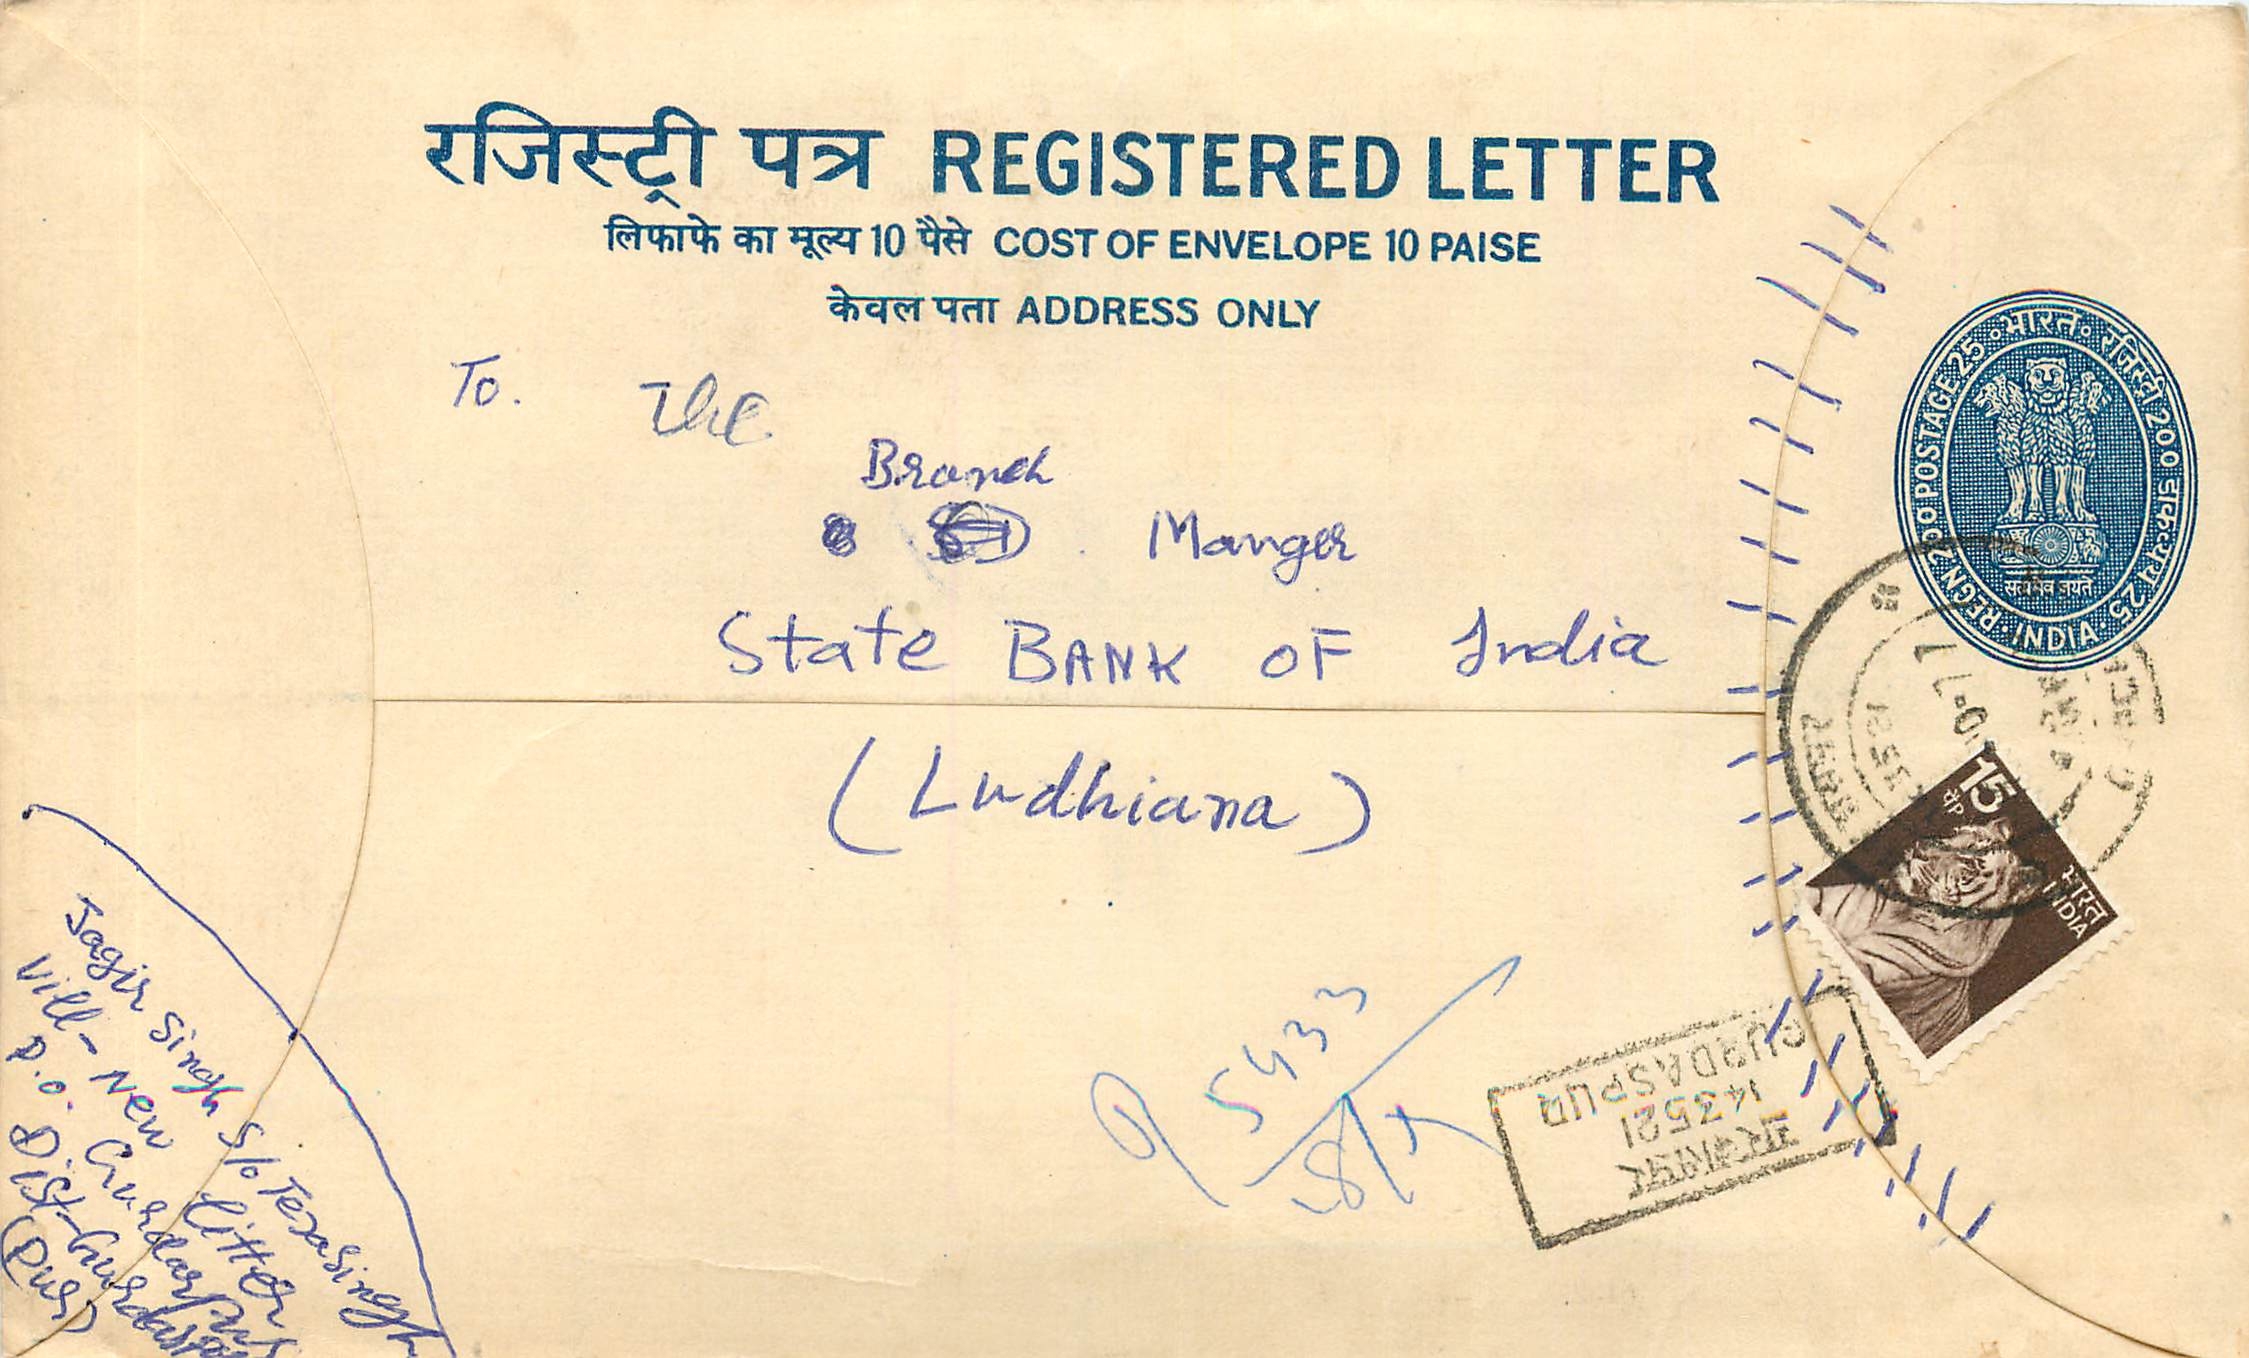 रजिस्ट्री पत्र REGISTERED LETTER
लिफाफे का मूल्य 10 पैसे COST OF ENVELOPE 10 PAISE
केवल पता ADDRESS ONLY
To. The
Branch
Manger
State BANK OF India
(Ludhiana)
भारत रजिस्ट्री 200 डाकव्यय 25
REGN 200 POSTAGE 25
सत्यमेव जयते
INDIA
15
भारत
INDIA
5433
गुरदासपुर
143521
GURDASPUR
Jagir Singh S/o Tejasingh
Vill- New litter
P.O. Gurdaspur
Dist- Gurdaspur